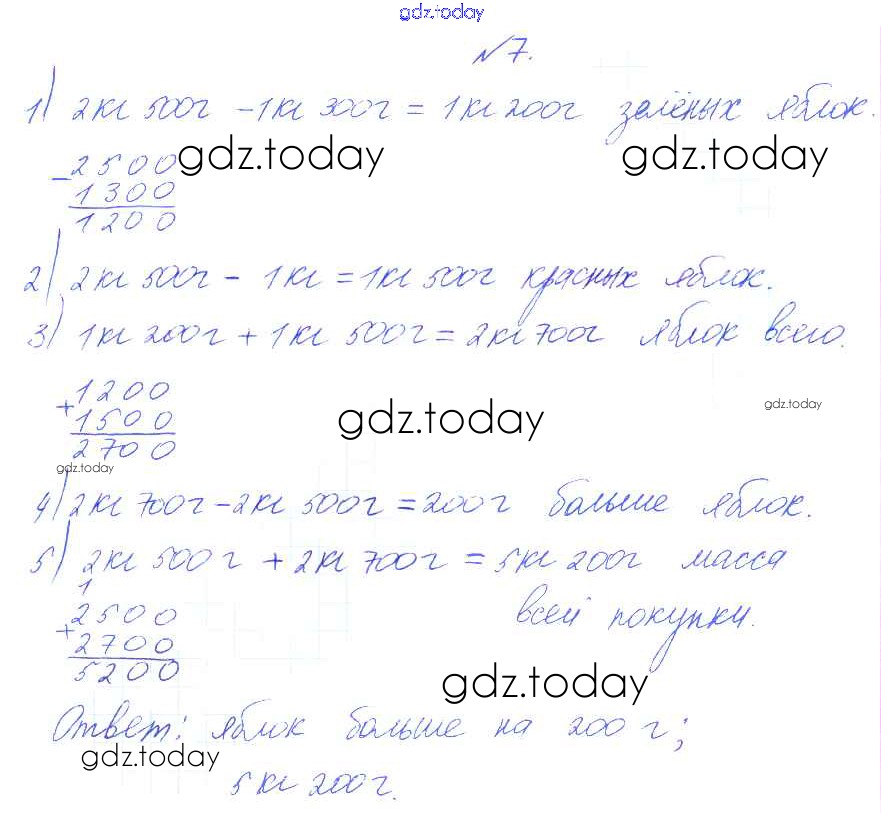 gdz.today
№7.
1) 2кг 500г - 1кг 300г = 1кг 200г зелёных яблок.
gdz.today gdz.today
- 2500
1300
1200
2) 2кг 500г - 1кг = 1кг 500г красных яблок.
3) 1кг 200г + 1кг 500г = 2кг 700г яблок всего.
+ 1200
1500
2700
gdz.today
gdz.today
gdz.today
4) 2кг 700г - 2кг 500г = 200г больше яблок.
5) 2кг 500г + 2кг 700г = 5кг 200г масса
всей покупки.
1
+ 2500
2700
5200
gdz.today
Ответ: яблок больше на 200 г;
gdz.today
5кг 200г.